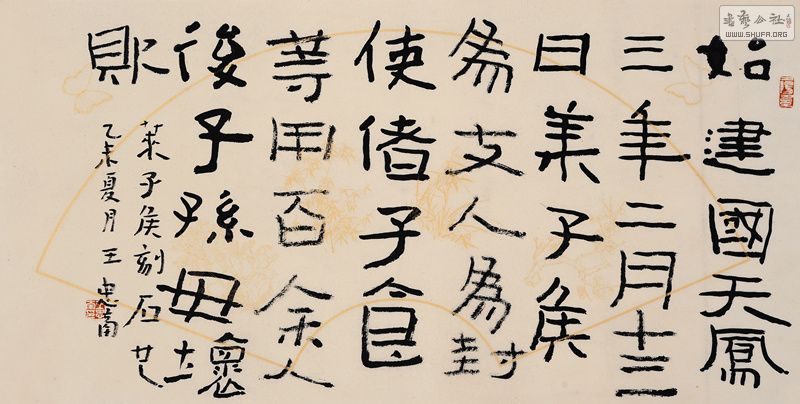 書藝公社
WWW.SHUFA.ORG
始建國天鳳
三年二月十三
日莱子侯
為支人為封
使偖子食
等用百余人
後子孫毋壞
敗
莱子侯刻石
乙未夏月 王忠